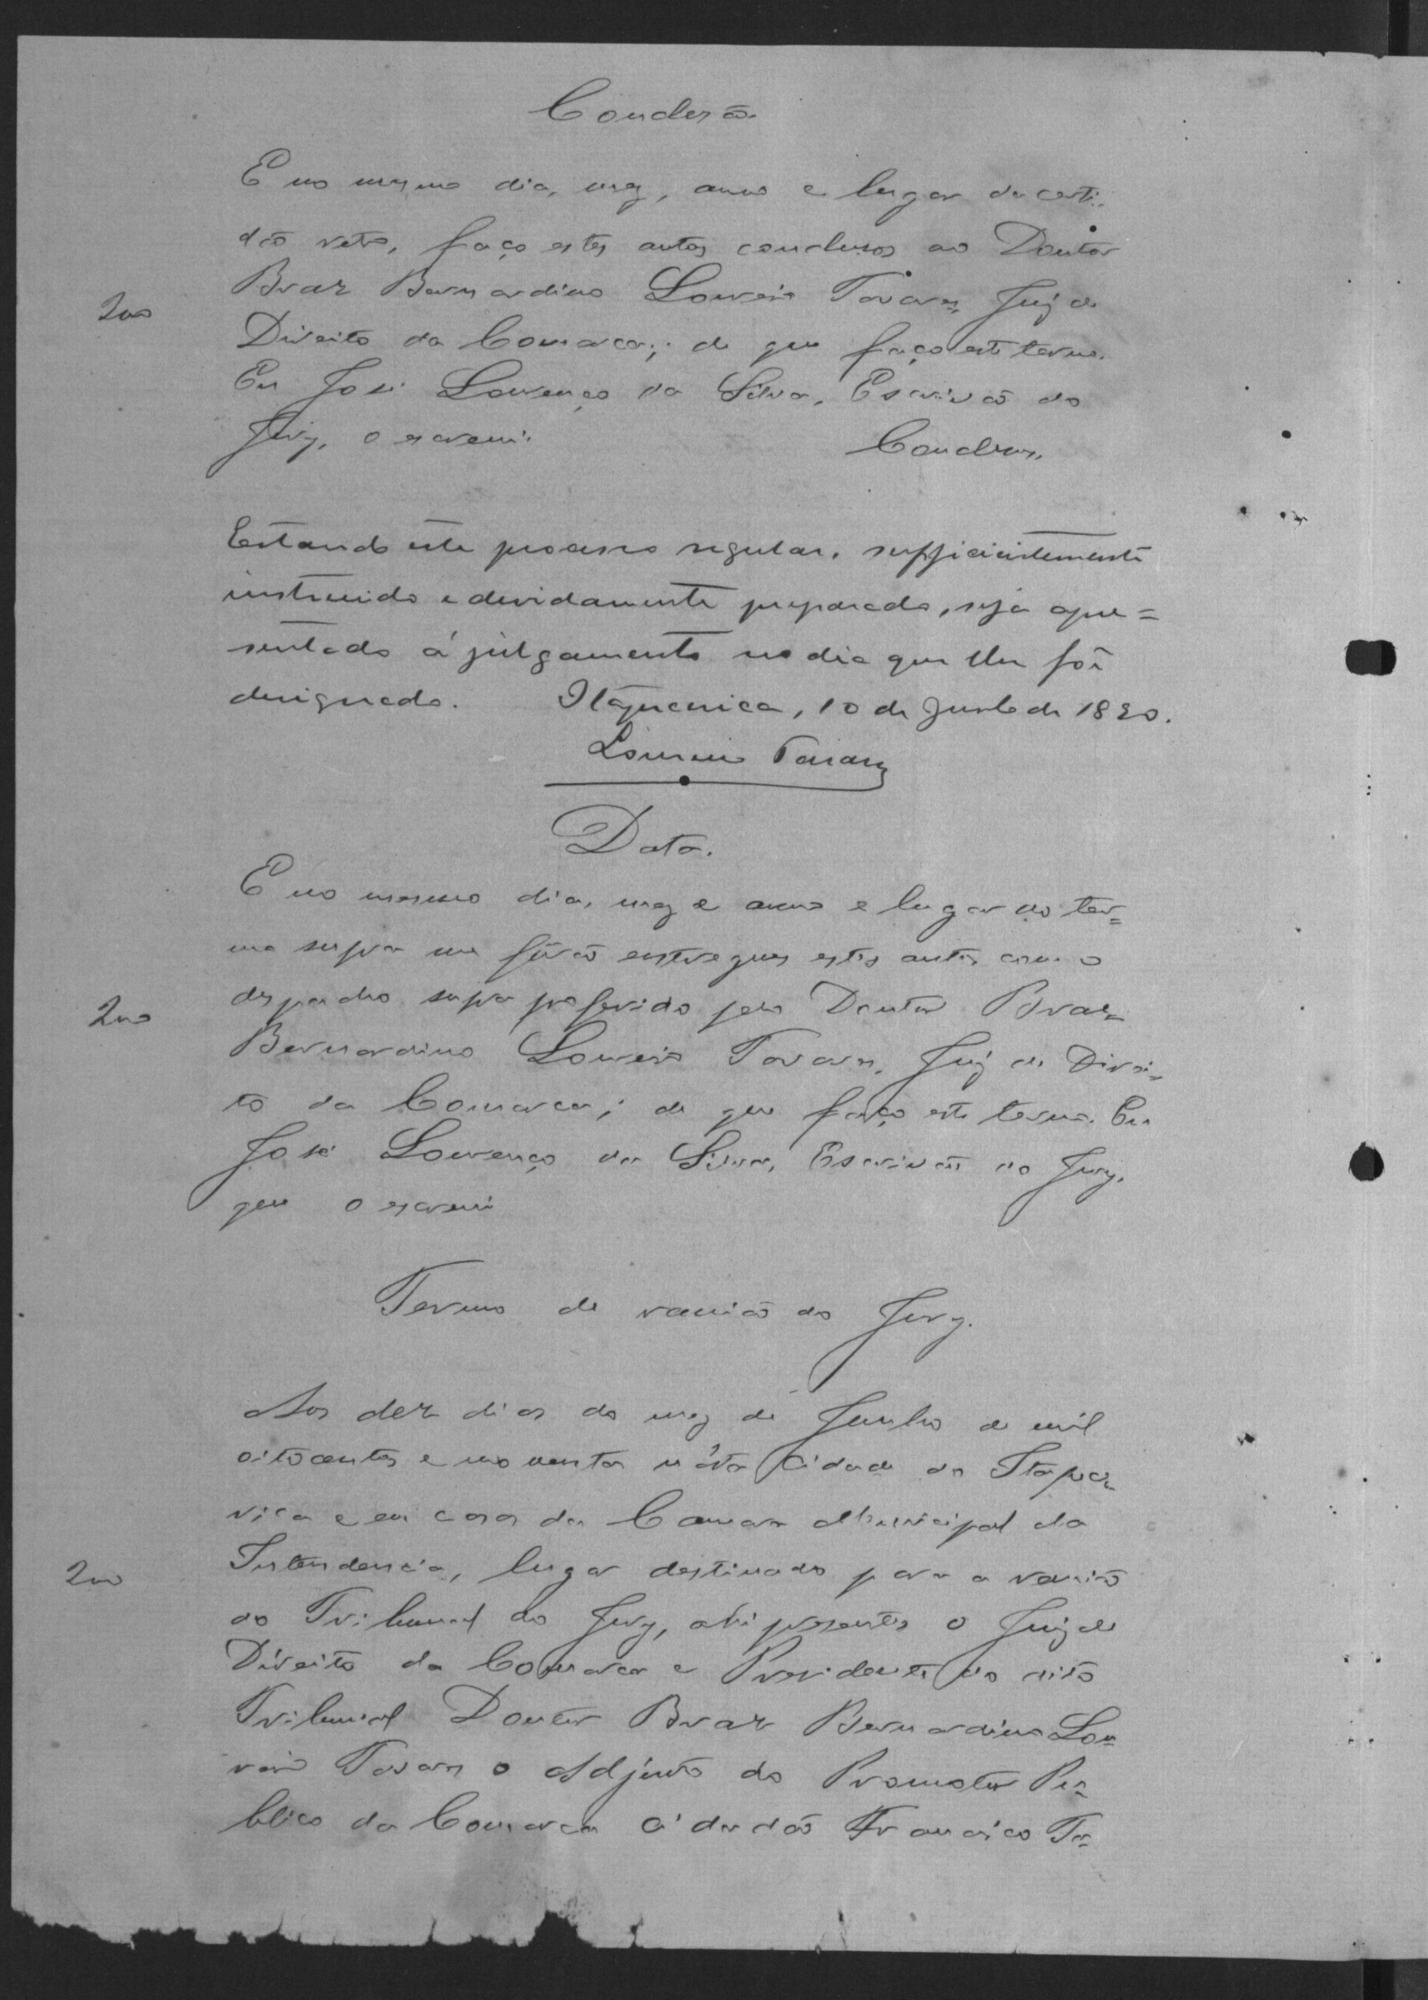 Conclusão
E no mesmo dia, mez, anno e lugar da certi-
dão retro, faço estes autos conclusos ao Doutor
Braz Bernardino Loureiro Tavares, Juiz de
200
Direito da Comarca; de que faço este termo.
Eu José Lourenço da Silva, Escrivão do
Jury, o escrevi.
Conclusos
Estando este processo regular, sufficientemente
instruido e devidamente preparado, seja apre=
sentado á julgamento no dia que lhe foi
designado. Itapecerica, 10 de Junho de 1890.
Loureiro Tavares
Data.
E no mesmo dia, mez e anno e lugar do ter=
mo supra me forão entregues estes autos com o
despacho supra proferido pelo Doutor Braz
200
Bernardino Loureiro Tavares, Juiz de Direi-
to da Comarca; de que faço este termo. Eu
José Lourenço da Silva, Escrivão do Jury,
que o escrevi
Termo de reunião do Jury.
Aos dez dias do mez de Junho de mil
oitocentos e noventa n'esta Cidade de Itapece-
rica e em casa da Camara Municipal da
200
Intendencia, lugar destinado para a reunião
do Tribunal do Jury, ahi presentes o Juiz de
Direito da Comarca e Presidente do dito
Tribunal Doutor Braz Bernardino Lou-
reiro Tavares o Adjunto do Promotor Pu-
blico da Comarca Cidadão Francisco Ta-